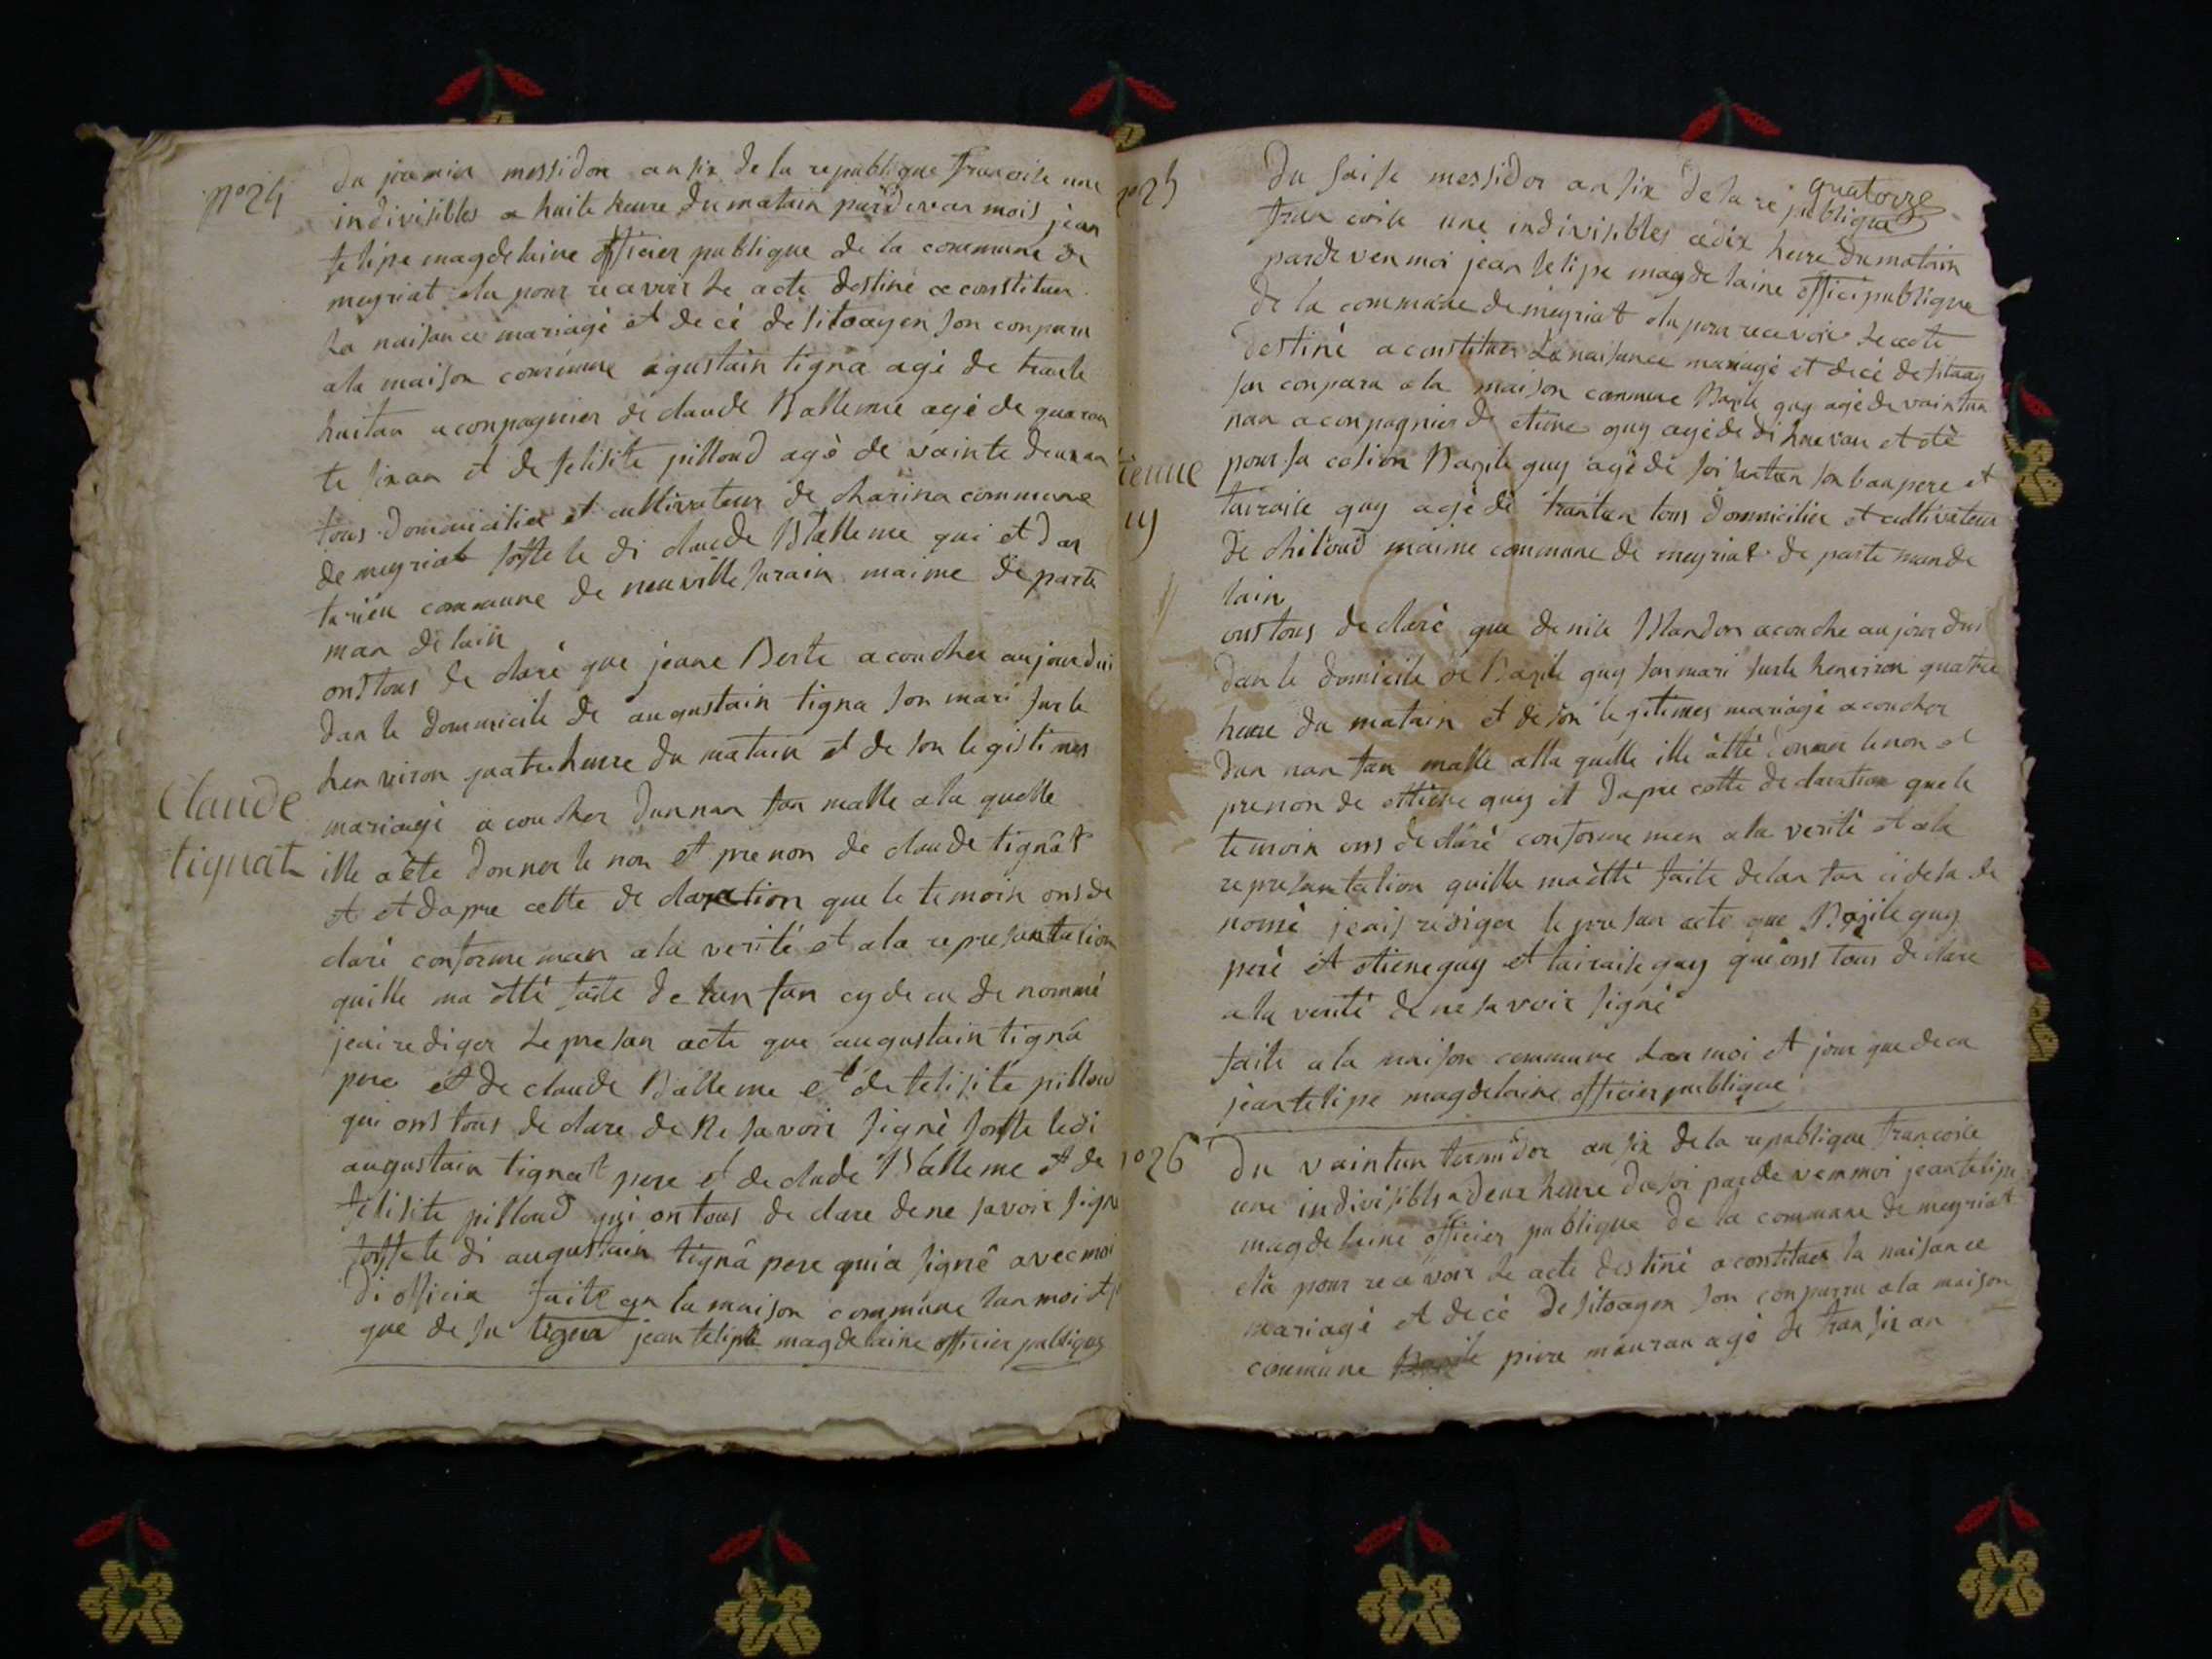 n° 24
du premier messidor an six de la republique francoise une
indivisibles a huite heure du matain pardevan mois jean
felipe magdelaine officier publique de la commune de
meyriat elu pour recevoir le acte destiné a constituer
la naisance mariagé et decé de sitoayen son conparu
a la maison commune agustain tigna agé de trante
huitan aconpagnier de claude Balleme agé de quaran
te sixan et de felisite pilloud agé de vainte deuxan
tous domicilier et cultivateur de charina commune
de meyriat sofle le di claude Balleme qui et dar
tarieu commune de neuville surain maime departe
man de lain
onstous de claré que jeane Berte acoucher aujourdui
dan le dommicile de augustain tigna son mari sur le
henviron quatre heure du matain et de son legistimes
mariagé acoucher dunnan fan malle a la quelle
Claude
tignat
ille a ète donner le non et prenon de claude tignat
et et dapre cette declaration que le temoin ons de
claré conforme man a la verité et a la representation
quille ma êtté faite de lan fan cy de cu de nommé
jeai rediger le presan acte que augustain tigna
pere et de claude Balleme et de felisite pilloud
qui ons tous de clare de ne savoir signè sofle le di
augustain tignat pere et de claude Balleme et de
felisite pilloud qui on tous de clare de ne savoir signe
sofle le di augustain tigna pere qui a signé avec moi
di officie faite an la maison commune lan moi et j
que de su tigna jean felipe magdelaine officier publique
quatorze
n° 25
du saise messidor an six de la republique
francoise une indivisibles a dix heure du matain
pardeven moi jean felipe magdelaine offici publique
de la commune de meyriat elu pour recevoir le acte
destiné a constituer la naisance mariagé et decé de sitoay
son conparu a la maison commune Bazile guy agé de vaintun
nan aconpagnier de etiene guy agé de di huevan et etè
ienne
uy
pour sa cosion Bazile guy agé de soisantan son bau pere et
tairaise guy agé de trantan tous dommicilier et cultivateur
de chiloud maime commune de meyriat de parte man de
lain
onstous declaré que denise Blandon acouche aujourdui
dan le domicile de Bazile guy son mari surle henviron quatre
heure du matain et de son legitimes mariagé acoucher
dun nan fan malle alla quelle ille atté donner le non et
prenon de ettiene guy et dapre cette declaration que le
temoin ons de claré conforme men a la verité et a la
representation quille ma êtté faite de lan fan ci de su de
nomé jeais rediger le presan acte que Bazile guy
peré et etiene guy et tairaise guy que ons tous de clare
a la verité de ne savoir signé
faite a la maison commune lan moi et jour que de cu
jean felipe magdelaine officier publique
n° 26
du vaintun termidor an six de la republique francoise
une indivisibles a deux heure du soi pardevemmoi jean felipe
magdelaine officier publique de la commune de meyriat
elu pour recevoir le acte destiné a constituer la naisance
mariagé et decé de sitoayen son conparru a la maison
commune piere mauran agé de tran six an